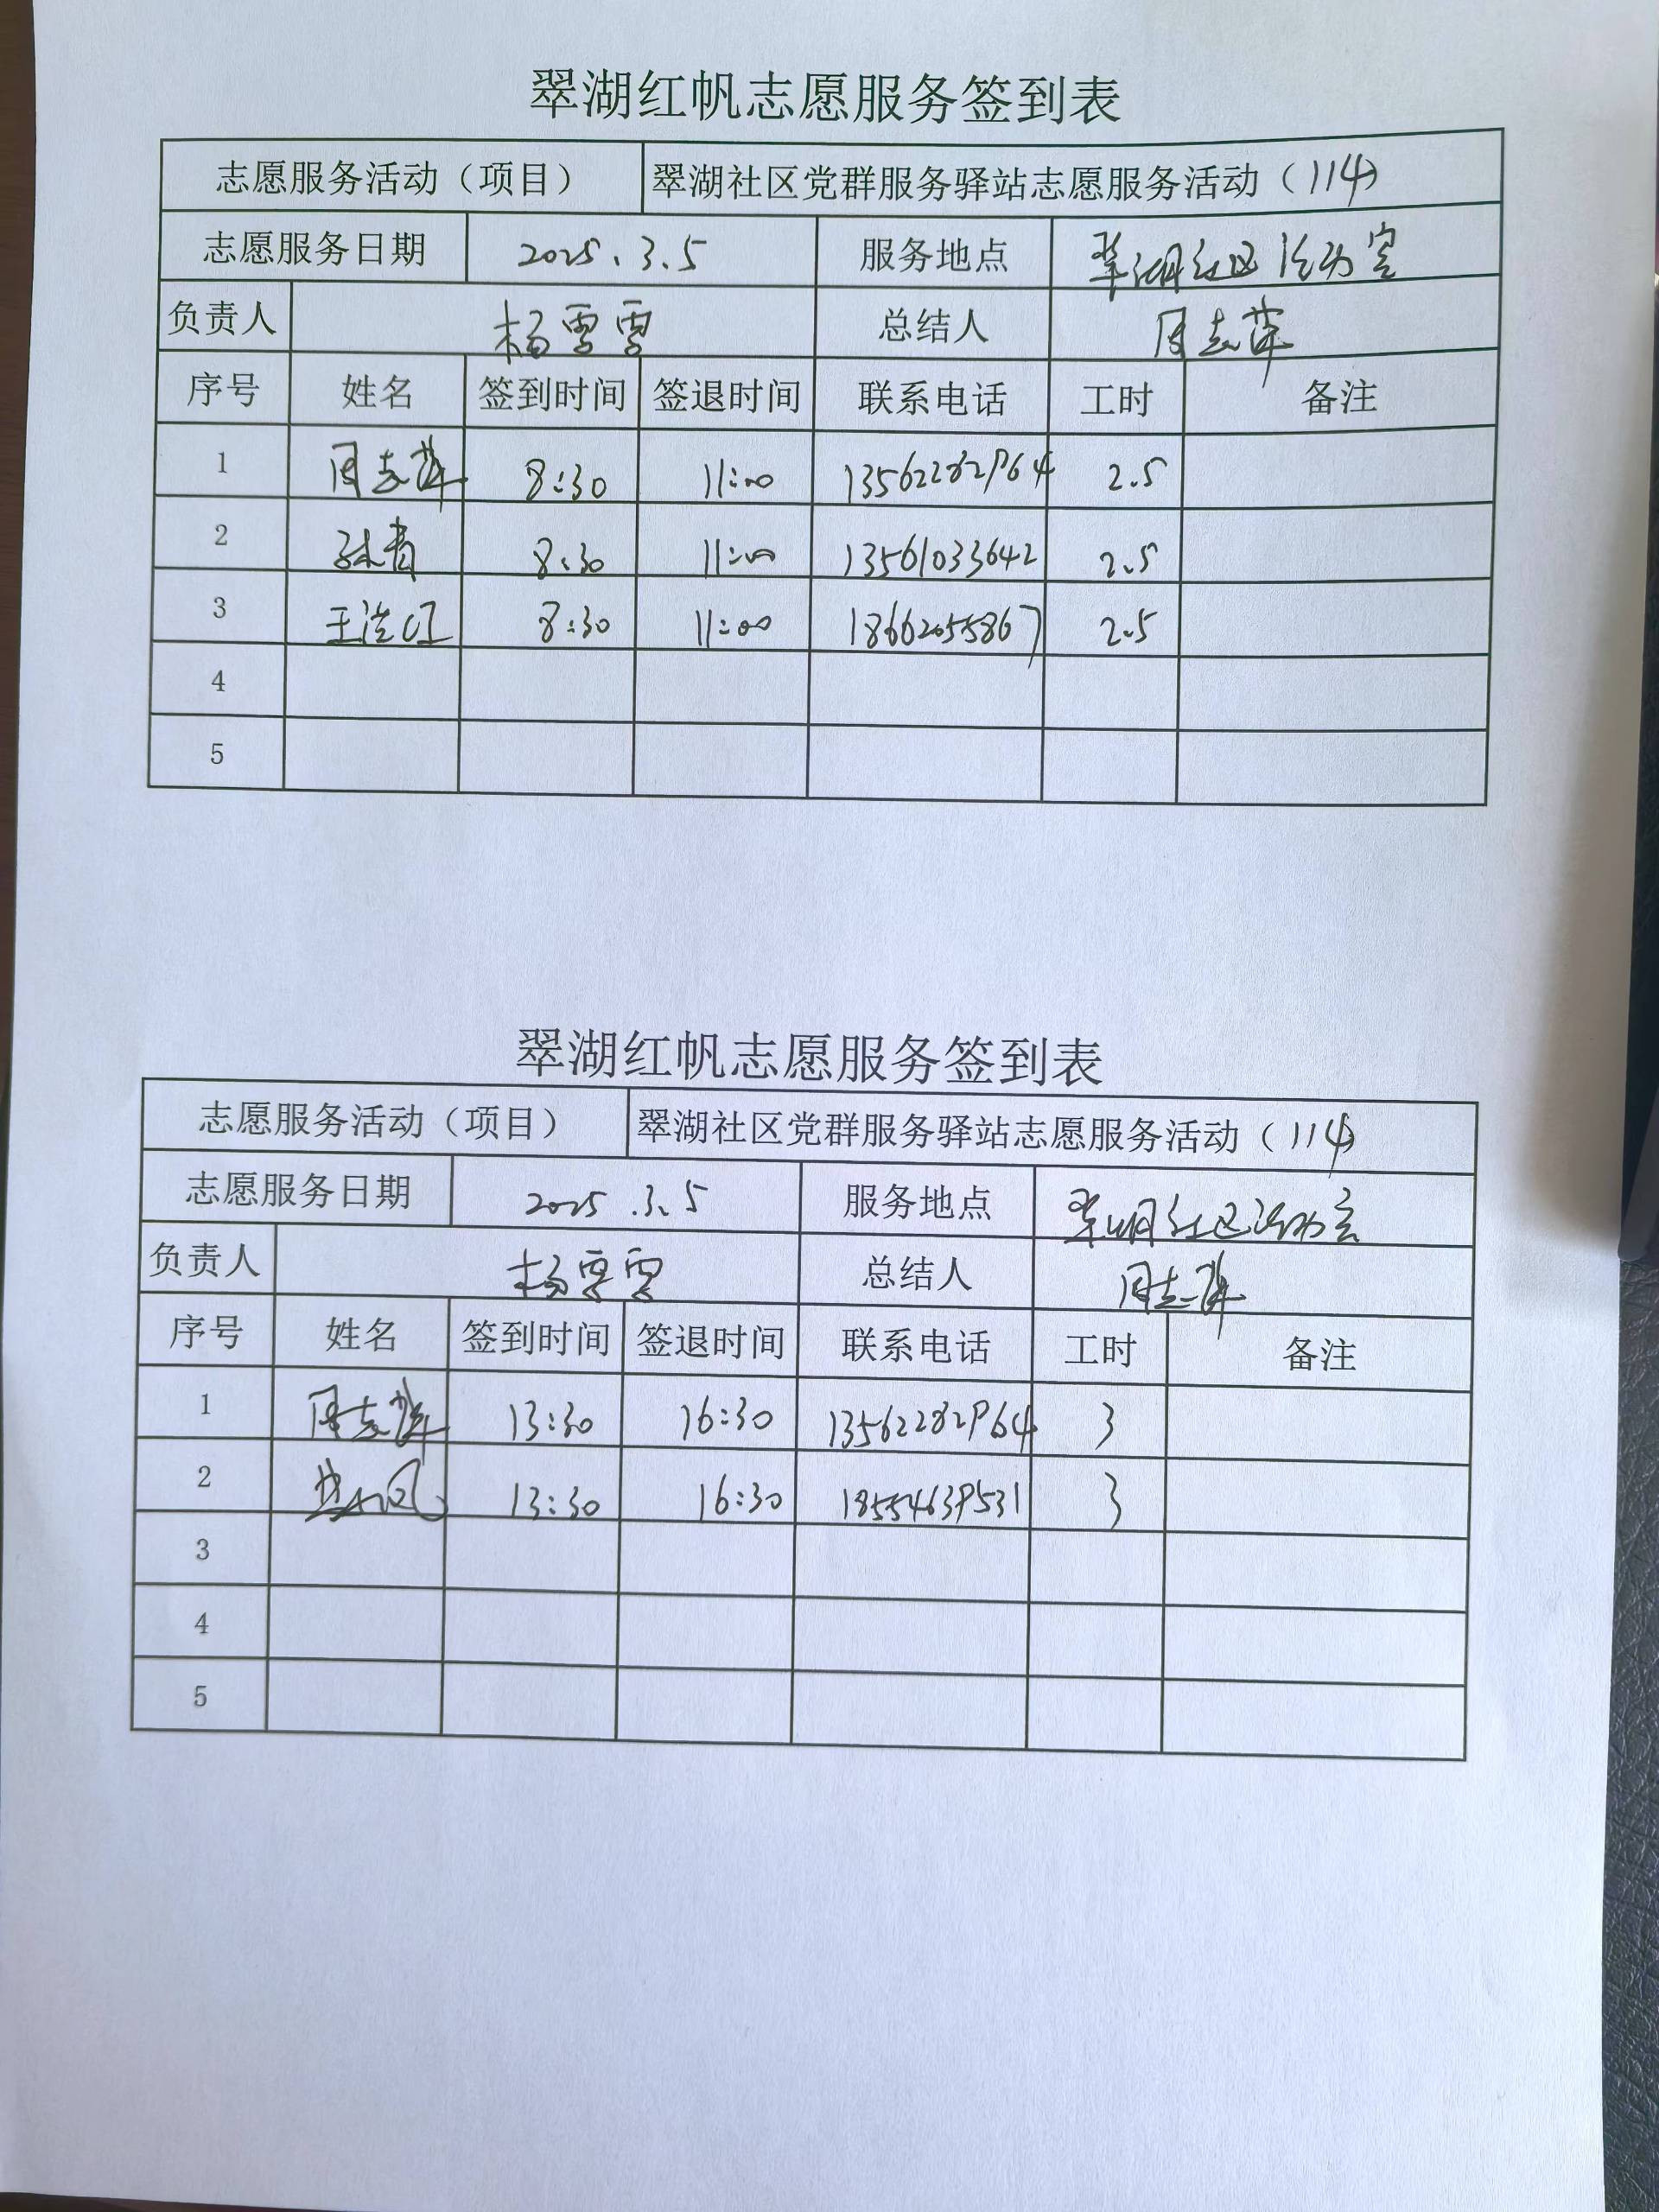 翠湖红帆志愿服务签到表
志愿服务活动（项目） 翠湖社区党群服务驿站志愿服务活动（114）
志愿服务日期 2025.3.5 服务地点 翠湖社区活动室
负责人 杨雪雪 总结人 周志萍
序号 姓名 签到时间 签退时间 联系电话 工时 备注
1 周志萍 8:30 11:00 13562282964 2.5
2 孙青 8:30 11:00 13561033642 2.5
3 王洪江 8:30 11:00 18662055867 2.5
4
5
翠湖红帆志愿服务签到表
志愿服务活动（项目） 翠湖社区党群服务驿站志愿服务活动（114）
志愿服务日期 2025.3.5 服务地点 翠湖社区活动室
负责人 杨雪雪 总结人 周志萍
序号 姓名 签到时间 签退时间 联系电话 工时 备注
1 周志萍 13:30 16:30 13562282964 3
2 13:30 16:30 18554639531 3
3
4
5